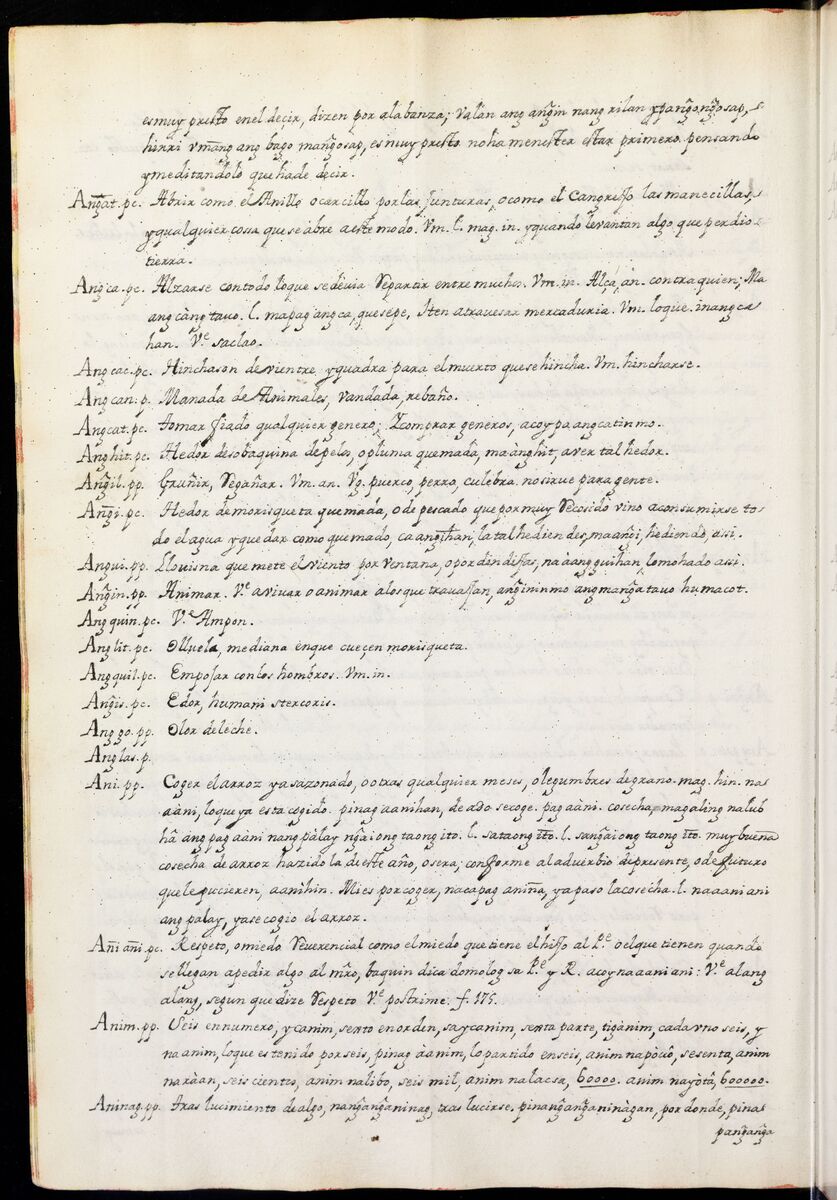 es muy presto en el decir, dizen por alabanza; valan ang ang̃in nang rilan ypang̃ong̃osap,
hinri vmãng ang bago mang̃osap, es muy presto no ha menester estar primero pensando
y meditandolo que ha de decir.
Ang̃at. pc. Abrir como el Anillo o carcillo por las junturas, o como el Cangrejo las manecillas,
y qualquier cosa que se abre a este modo. Vm. l. mag. in. y quando levantan algo que perdio
tierra.
Angca. pc. Alzarse con todo lo que se devia Repartir entre muchos. Vm. in. Alcá, an. contra quien; Ma
angcàng tavo. l. mapag angca, que sepe, Iten atravesar mercaduria. Vm. lo que. in angca
han. Vᵉ saclao.
Angcac. pc. Hinchason de vientre y quadra para el muerto que se hincha. Vm. hincharse.
Angcan. p. Manada de Animales, vandada, rebaño.
Angcat. pc. tomar fiado qualquier genero; Y comprar generos, acoy pa angcatin mo.
Anghit. pc. Hedor de sobaquina de pelo, o pluma quemada, maànghit, aver tal hedor.
Ang̃il. pp. Gruñir, Regañar. Vm. an. Vg. puerco, perro, culebra. no sirve para gente.
Ang̃i. pc. Hedor de morisqueta quemada, o de pescado que por muy Recosido vino a consumirse to
do el agua y quedar como quemado, ca ang̃ihan, la tal hediendes, maang̃i, hediendo, assi.
Angui. pp. Llouisna que mete el viento por ventana, o por dendijas, na àangguihan, lo mohado assi.
Ang̃in. pp. Animar. Vᵉ avivar o animar a los que travajan, ang̃inin mo ang mang̃a tavo humacot.
Angquin. pc. Vᵉ Ampon.
Anglit. pc. Olluela, mediana en que cueçen morisqueta.
Angquil. pc. Empojar con los hombros. Vm. in.
Ang̃is. pc. Edor, humani stercoris.
Anggo. pp. Olor de leche.
Anglas. p.
Ani. pp. Coger el arroz ya sazonado, o otras qualquier meses, o legumbres de grano. mag. hin. na
aàni, lo que ya esta cogido. pinag aanihan, de ado se coge. pag aàni. cosecha, magaling na lub
hã ang pag aàni nang pàlay ng̃aiong taong ito. l. sa taong ito. l. sang̃aiong taong ito. muy buena
cosecha de arroz ha zido la de este año, o sera; conforme al adverbio de presente, o de futuro
que le pucieren, aanihin. Mies por coger, nacapag anina, ya paso la cosecha. l. naaani ani
ang palay, ya se cogio el arroz.
Añi añi. pc. Respeto, o miedo Reverencial como el miedo que tiene el hijo al Pᵉ o el que tienen quando
se llegan a pedir algo al mr̃o, baquin dica domolog sa Pᵉ y R. acoy naaniani: Vᵉ alang
alang, segun que dize Respeto Vᵉ postrime: f. 175.
Anim. pp. Seis en numero, ycanim, sexto en orden, saycanim, sexta parte, tigànim, cada vno seis, y
na anim, lo que es tenido por seis, pinag àanim, lo partido en seis, anim na pòvò, sesenta, anim
naràan, seis cientos, anim na libo, seis mil, anim na lacsa, 60000. anim nayòta, 600000.
Aninag. pp. tras lucimiento de algo, nang̃ang̃aninag, tras lucirse. pinang̃ang̃aninàgan, por donde, pinas
pang̃ang̃a